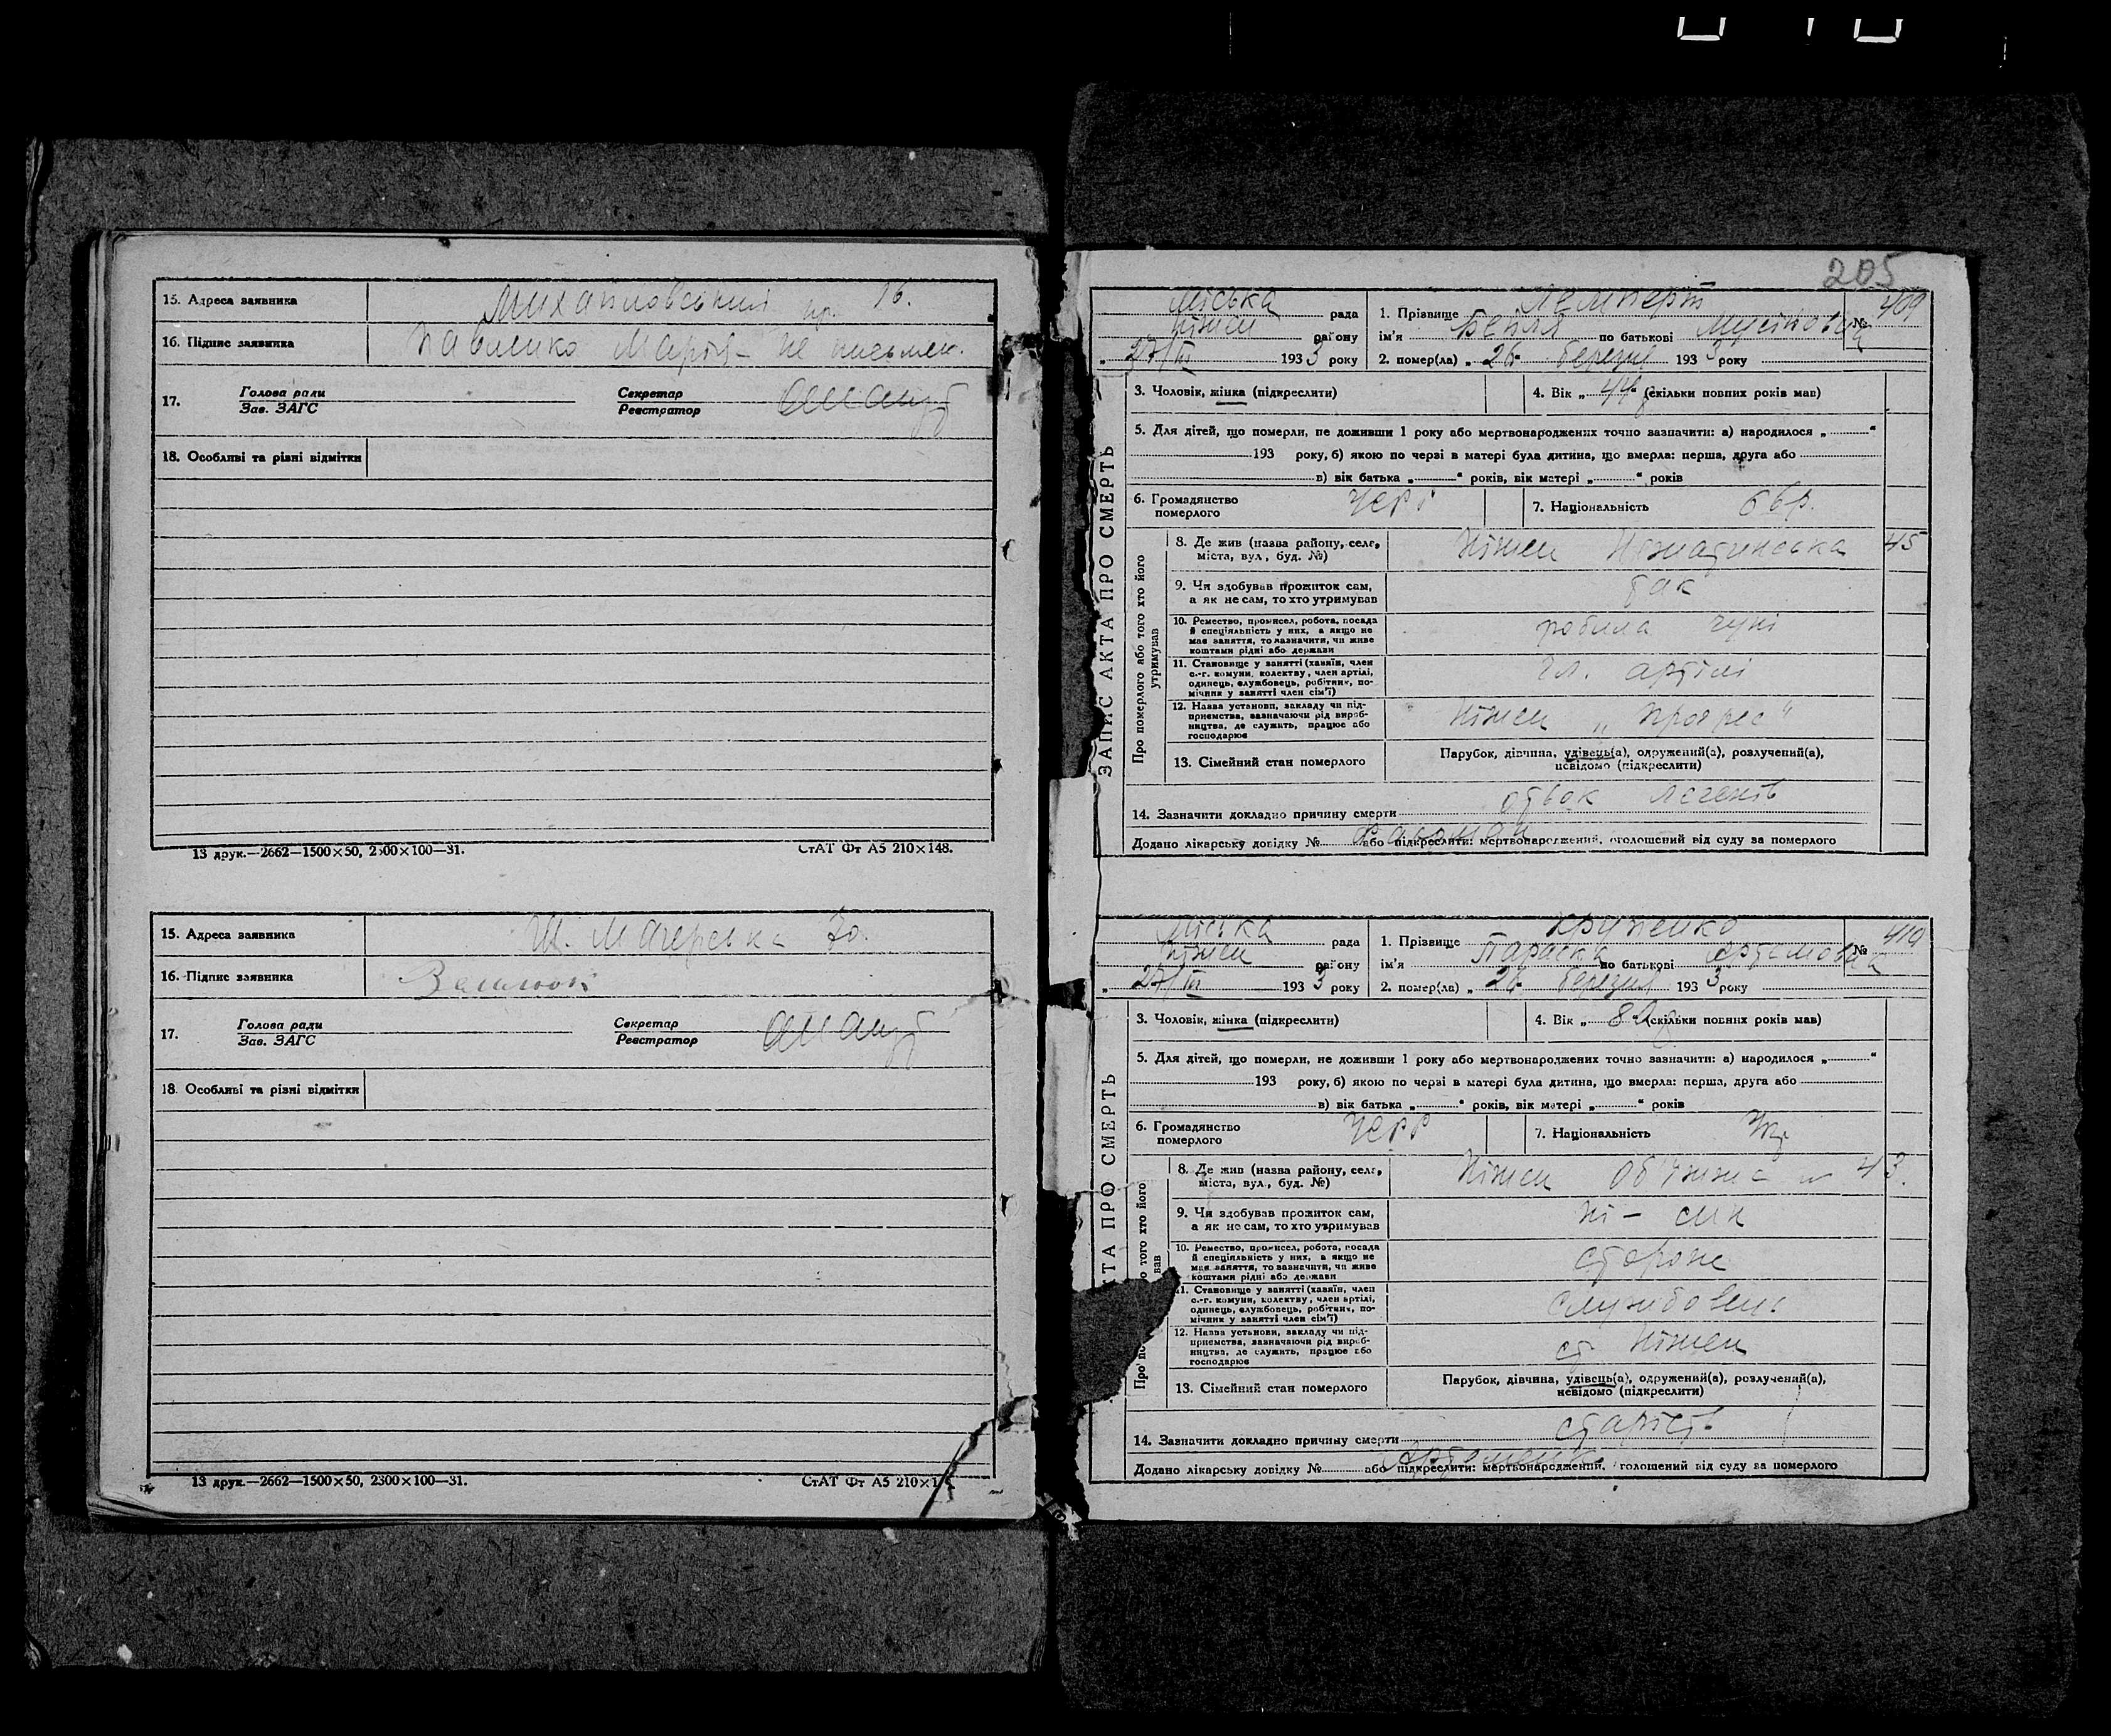 15. Адреса заявника Михайловський пр. 16.
16. Підпис заявника Павленко Марія – не письмен.
17. Голова ради Секретар
Зав. ЗАГС Реєстратор
18. Особливі та різні відмітки
13 друк.—2662—1500×50, 2300×100—31. СтАТ Фт А5 210×148.
15. Адреса заявника Ш. Магерська 70.
16. Підпис заявника
17. Голова ради Секретар
Зав. ЗАГС Реєстратор
18. Особливі та різні відмітки
13 друк.—2662—1500×50, 2300×100—31. СтАТ Фт А5 210×1
205
ЗАПИС АКТА ПРО СМЕРТЬ
міська рада 1. Прізвище Лемперт № 409
Ніжен району ім'я Бейля по батькові
„ 27/III 1933 року 2. помер(ла) „ 26 березня 1933 року
3. Чоловік, жінка (підкреслити) 4. Вік „ 44 “ (скільки повних років мав)
5. Для дітей, що померли, не доживши 1 року або мертвонароджених точно зазначити: а) народилося „ “
193 року, б) якою по черзі в матері була дитина, що вмерла: перша, друга або
в) вік батька „ “ років, вік матері „ “ років
6. Громадянство УСРР 7. Національність євр.
померлого
Про померлого або того хто його утримував
8. Де жив (назва району, села, Ніжен 45
міста, вул., буд. №)
9. Чи здобував прожиток сам, так
а як не сам, то хто утримував
10. Ремество, промисел, робота, посада робила чуні
й спеціяльність у них, а якщо не
мав заняття, то зазначити, чи живе
коштами рідні або держави
11. Становище у занятті (хазяїн, член чл. артілі
с.-г. комуни, колективу, член артілі,
одинець, службовець, робітник, по-
мічник у занятті член сім'ї)
12. Назва установи, закладу чи під- Ніжен „Прогрес“
приємства, зазначаючи рід вироб-
ництва, де служить, працює або
господарює
13. Сімейний стан померлого Парубок, дівчина, удівець(а), одружений(а), розлучений(а),
невідомо (підкреслити)
14. Зазначити докладно причину смерти отьок легенів
Додано лікарську довідку № або підкреслити: мертвонароджений, оголошений від суду за померлого
ТА ПРО СМЕРТЬ
міська рада 1. Прізвище Крупенко № 410
Ніжен району ім'я Параска по батькові Артемовна
„ 27/III 1933 року 2. помер(ла) „ 26 березня 1933 року
3. Чоловік, жінка (підкреслити) 4. Вік „ “ (скільки повних років мав)
5. Для дітей, що померли, не доживши 1 року або мертвонароджених точно зазначити: а) народилося „ “
193 року, б) якою по черзі в матері була дитина, що вмерла: перша, друга або
в) вік батька „ “ років, вік матері „ “ років
6. Громадянство УСРР 7. Національність Укр
померлого
8. Де жив (назва району, села, Ніжен Об'їжжа № 43.
міста, вул., буд. №)
9. Чи здобував прожиток сам, ні – син
а як не сам, то хто утримував
10. Ремество, промисел, робота, посада
й спеціяльність у них, а якщо не
мав заняття, то зазначити, чи живе
коштами рідні або держави
11. Становище у занятті (хазяїн, член службовець
с.-г. комуни, колективу, член артілі,
одинець, службовець, робітник, по-
мічник у занятті член сім'ї)
12. Назва установи, закладу чи під- ст Ніжен
приємства, зазначаючи рід вироб-
ництва, де служить, працює або
господарює
13. Сімейний стан померлого Парубок, дівчина, удівець(а), одружений(а), розлучений(а),
невідомо (підкреслити)
14. Зазначити докладно причину смерти старість
Додано лікарську довідку № або підкреслити: мертвонароджений, голошений від суду за померлого